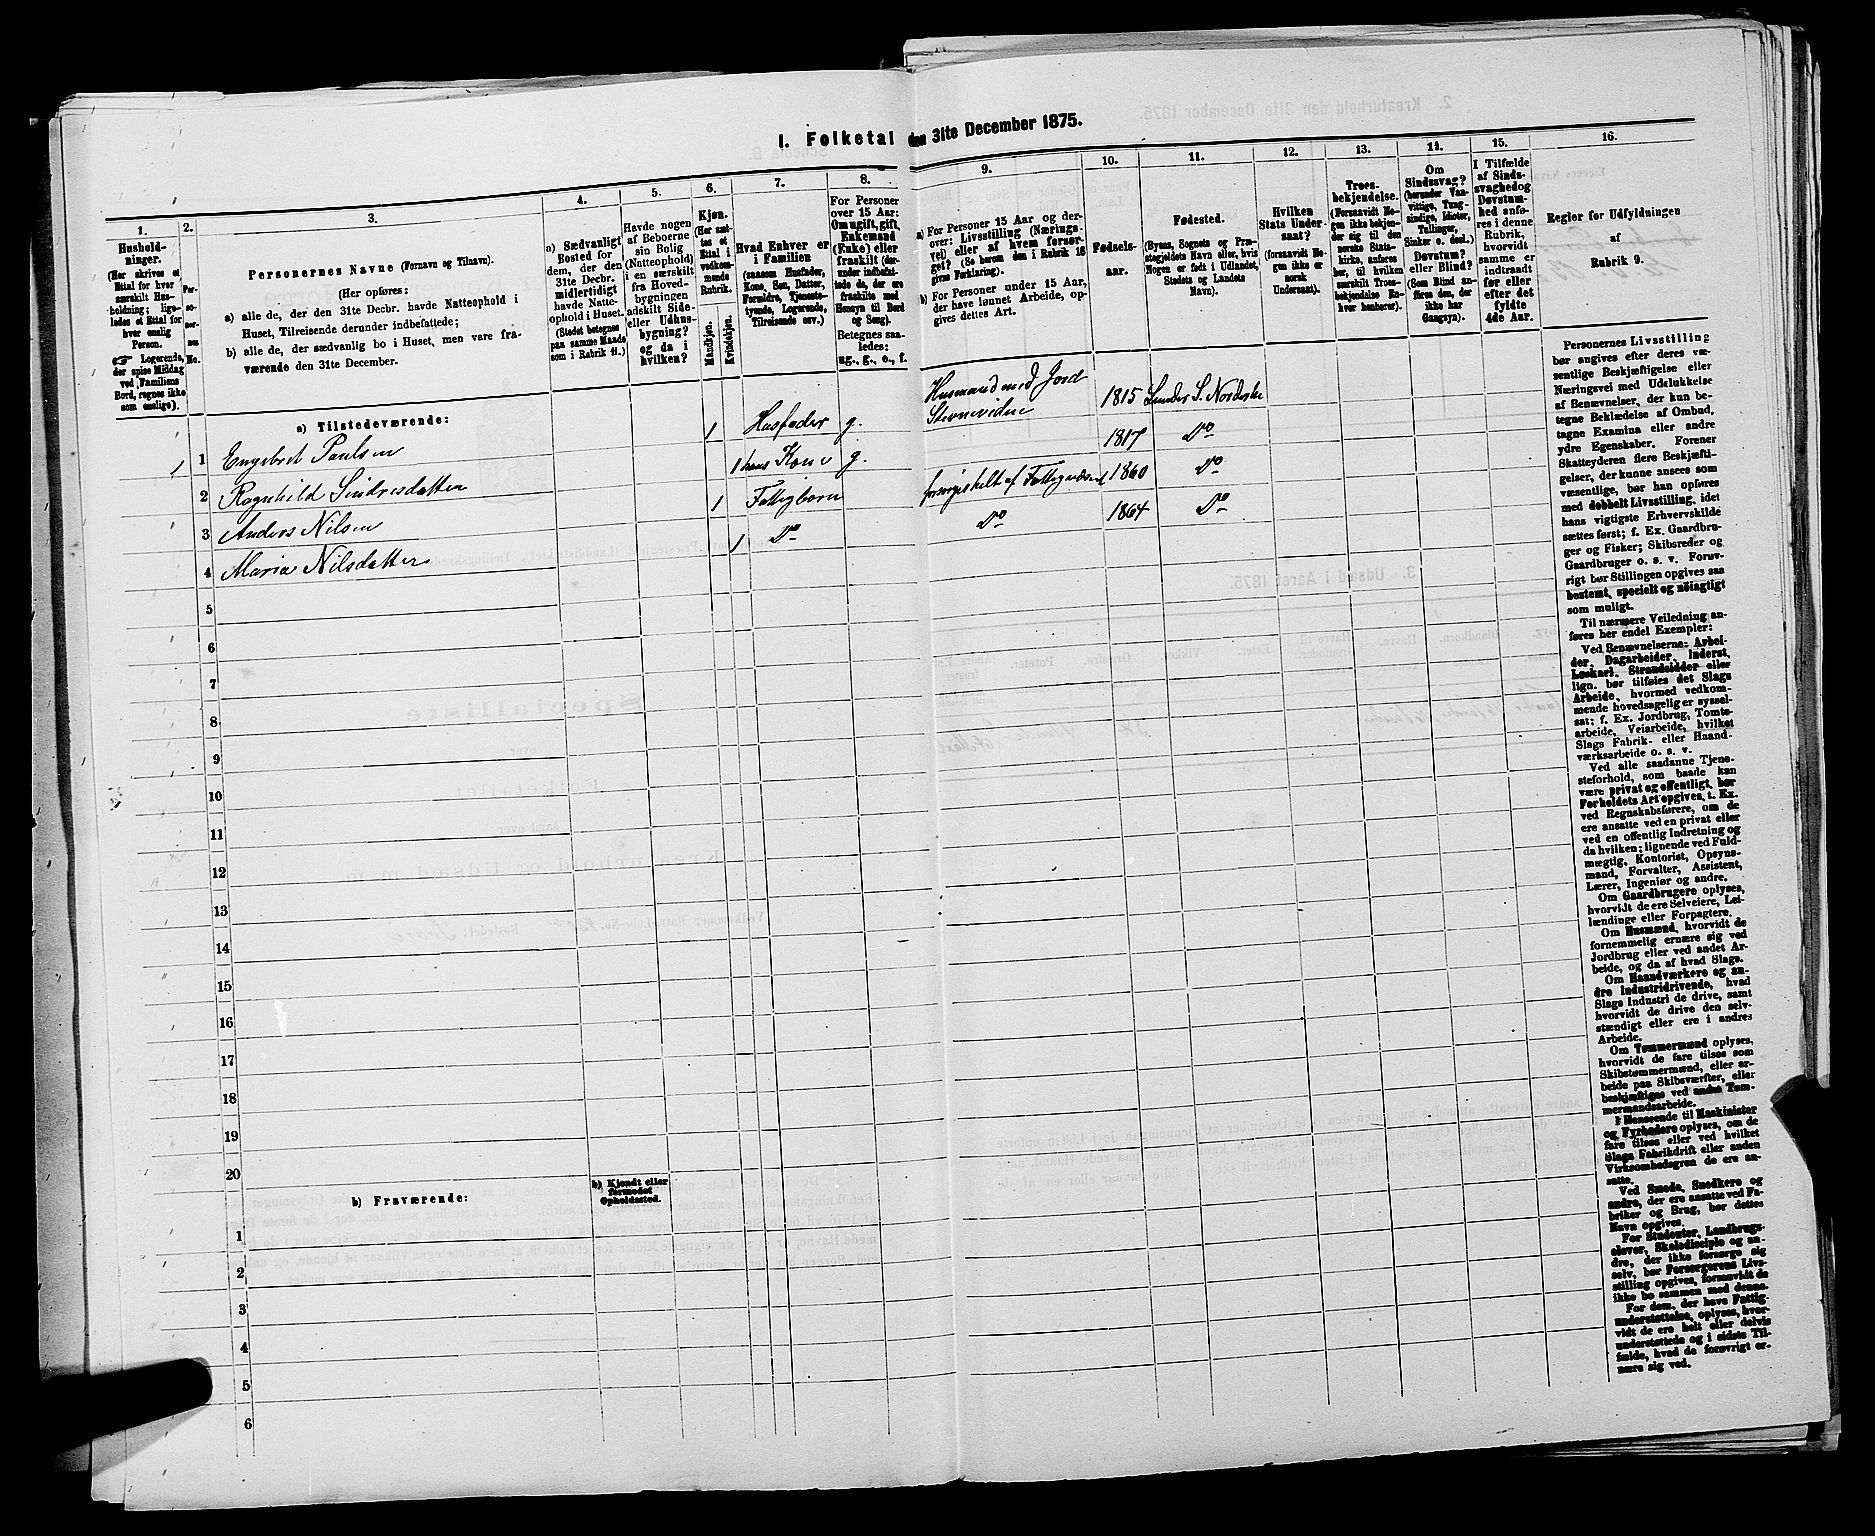 I. Folketal den 31te December 1875.
1.
2.
3.
4.
5.
6.
7.
8.
9.
10.
11.
12.
13.
14.
15.
16.
Hushold-
ninger.
(Her skrives et
Ettal for hver
særskilt Hus-
holdning; lige-
ledes et Ettal for
hver enslig
Person.
Logerende,
der spise Middag
ved Familiens
Bord, regnes ikke
som enslige).
Per-
so-
ner-
nes
No.
Personernes Navne (Fornavn og Tilnavn).
(Her opføres:
a) alle de, der den 31te Decbr. havde Natteophold i
Huset, Tilreisende derunder indbefattede;
b) alle de, der sædvanlig bo i Huset, men vare fra-
værende den 31te December.
a) Sædvanligt
Bosted for
dem, der den
31te Decbr.
midlertidigt
havde Natte-
ophold i Huset.
(Stedet betegnes
paa samme Maade
som i Rubrik 11.)
Havde nogen
af Beboerne
sin Bolig
(Natteophold)
i en særskilt
fra Hoved-
bygningen
adskilt Side-
eller Udhus-
bygning?
og da i
hvilken?
Kjøn.
(Her sæt-
tes et
Ettal i
vedkom-
mende
Rubrik.
Mandkjøn.
Kvindekjøn.
Hvad Enhver er
i Familien
(saasom Husfader,
Kone, Søn, Datter,
Forældre, Tjeneste-
tyende, Logerende,
Tilreisende osv.)
For Personer
over 15 Aar:
Om ugift, gift,
Enkemand
(Enke) eller
fraskilt (der-
under indbefat-
tede de, der ere
fraskilte med
Hensyn til Bord
og Seng).
Betegnes saa-
ledes:
ug., g., e., f.
a) For Personer 15 Aar og der-
over: Livsstilling (Nærings-
vei) eller af hvem forsør-
get? (Se herom den i Rubrik 16
givne Forklaring).
b) For Personer under 15 Aar,
der have lønnet Arbeide, op-
gives dettes Art.
Fødsels-
aar.
Fødested.
(Byens, Sognets og Præ-
stegjeldets Navn eller, hvis
Nogen er født i Udlandet,
Stedets og Landets
Navn).
Hvilken
Stats Under-
saat?
(forsaavidt No-
gen ikke er
norsk
Undersaat).
Troes-
bekjendelse.
(Forsaavidt No-
gen ikke bekjen-
der sig til den
norske Stats-
kirke, anføres
her, til hvilken
særskilt Troes-
bekjendelse En-
hver henhører).
Om
Sindssvag?
(herunder Van-
vittige, Tung-
sindige, Idioter,
Tullinger,
Sinker o. desl.)
Døvstum?
eller Blind?
(Som Blind an-
føres den, der
ikke har
Gangsyn).
I Tilfælde
af Sinds-
svaghed og
Døvstum-
hed anfø-
res i denne
Rubrik,
hvorvidt
samme er
indtraadt
før eller
efter det
fyldte
4de Aar.
Regler for Udfyldningen
af
Rubrik 9.
a) Tilstedeværende:
1 1 Engebret Paulsen 1 Husfader g. Husmand med Jord 1815
2 Ragnhild Sindresdatter 1 hans Kone g. 1817 Do
3 Anders Nilsen 1 Fattigbarn 1860 Do
4 Maria Nilsdatter 1 Do Do 1864 Do
5
6
7
8
9
10
11
12
13
14
15
16
17
18
19
20
b) Fraværende:
b) Kjendt eller
formodet
Opholdssted.
1
2
3
4
5
6
Personernes Livsstilling
bør angives efter deres væ-
sentlige Beskjæftigelse eller
Næringsvei med Udelukkelse
af Benævnelser, der kun be-
tegne Beklædelse af Ombud,
tagne Examina eller andre
ydre Egenskaber. Forener
Skatteyderen flere Beskjæfti-
gelser, der kunne ansees som
væsentlige, bør han opføres
med dobbelt Livsstilling, idet
hans vigtigste Erhvervskilde
sættes først; f. Ex. Gaardbru-
ger og Fisker; Skibsreder og
Gaardbruger o. s. v. Forøv-
rigt bør Stillingen opgives saa
bestemt, specielt og nøiagtigt
som muligt.
Til nærmere Veiledning an-
føres her endel Exempler:
Ved Benævnelserne: Arbei-
der, Dagarbeider, Inderst,
Løskarl, Strandsidder eller
lign. bør tilføies det Slags
Arbeide, hvormed vedkom-
mende hovedsagelig er syssel-
sat; f. Ex. Jordbrug, Tomte-
arbeide, Veiarbeide, hvilket
Slags Fabrik- eller Haand-
værksarbeide o. s. v.
Ved alle saadanne Tjene-
steforhold, som baade kan
være privat og offentligt, bør
Forholdets Art opgives, t. Ex.
ved Regnskabsførere, om de
ere ansatte ved en privat eller
ved en offentlig Indretning og
da hvilken; lignende ved Fuld-
mægtig, Kontorist, Opsyns-
mand, Forvalter, Assistent,
Lærer, Ingeniør og andre.
Om Gaardbrugere oplyses,
hvorvidt de ere Selveiere, Lei-
lændinge eller Forpagtere.
Om Husmænd, hvorvidt de
fornemmelig ernære sig ved
Jordbrug eller ved andet Ar-
beide, og da af hvad Slags.
Om Haandværkere og an-
dre Industridrivende, hvad
Slags Industri de drive, samt
hvorvidt de drive den selv-
stændigt eller ere i andres
Arbeide.
Om Tømmermænd oplyses,
hvorvidt de fare tilsøs som
Skibstømmermænd, eller ar-
beide paa Skibsværfter, eller
beskjæftiges ved andre Tøm-
mermandsarbeide.
I Henseende til Maskinister
og Fyrbødere oplyses, om de
fare tilsøs eller ved hvilket
Slags Fabrikdrift eller anden
Virksomhedsgren de ere an-
satte.
Ved Smede, Snedkere og
andre, der ere ansatte ved Fa-
briker og Brug, bør dettes
Navn opgives.
For Studenter, Landbrugs-
elever, Skoledisciple og an-
dre, der ikke forsørge sig
selv, bør Forsørgerens Livs-
stilling opgives, forsaavidt de
ikke bo sammen med denne.
For dem, der have Fattig-
understøttelse, oplyses, hvor-
vidt de ere helt eller delvis
understøttede og i sidste Til-
fælde, hvad de forøvrigt er-
nære sig ved.